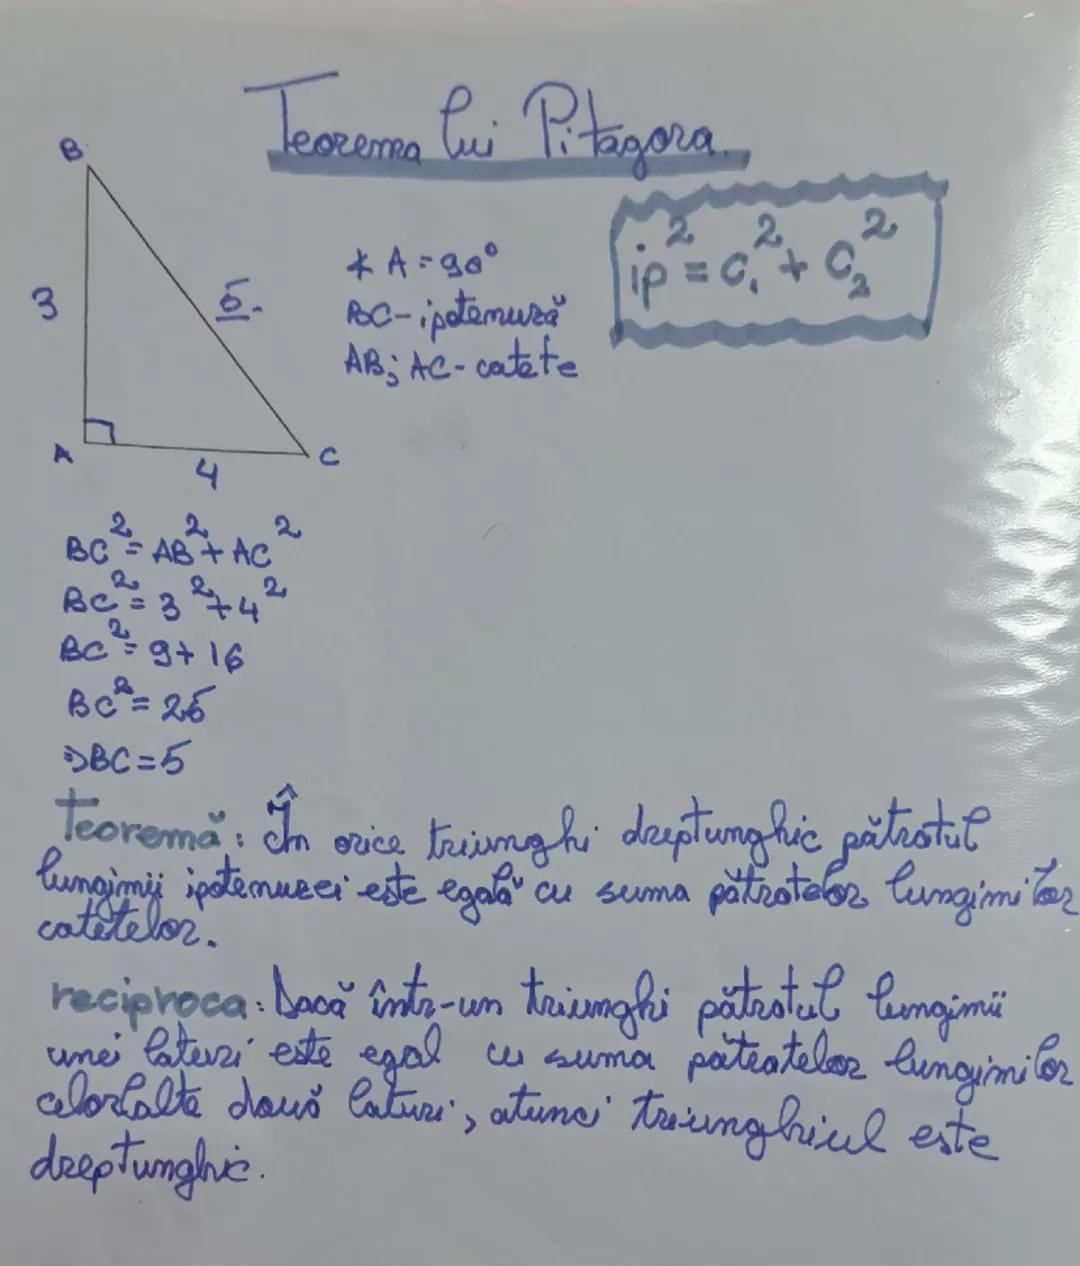 Teorema lui Pitagora
B
∢ A = 90°
ip² = c₁² + c₂²
3
5
BC - ipotenuză
AB; AC - catete
A
4
C
BC² = AB² + AC²
BC² = 3² + 4²
BC² = 9 + 16
BC² = 25
⇒ BC = 5
Teoremă: În orice triunghi dreptunghic pătratul
lungimii ipotenuzei este egală cu suma pătratelor lungimilor
catetelor.
reciproca: Dacă într-un triunghi pătratul lungimii
unei laturi este egal cu suma pătratelor lungimilor
celorlalte două laturi, atunci triunghiul este
dreptunghic.